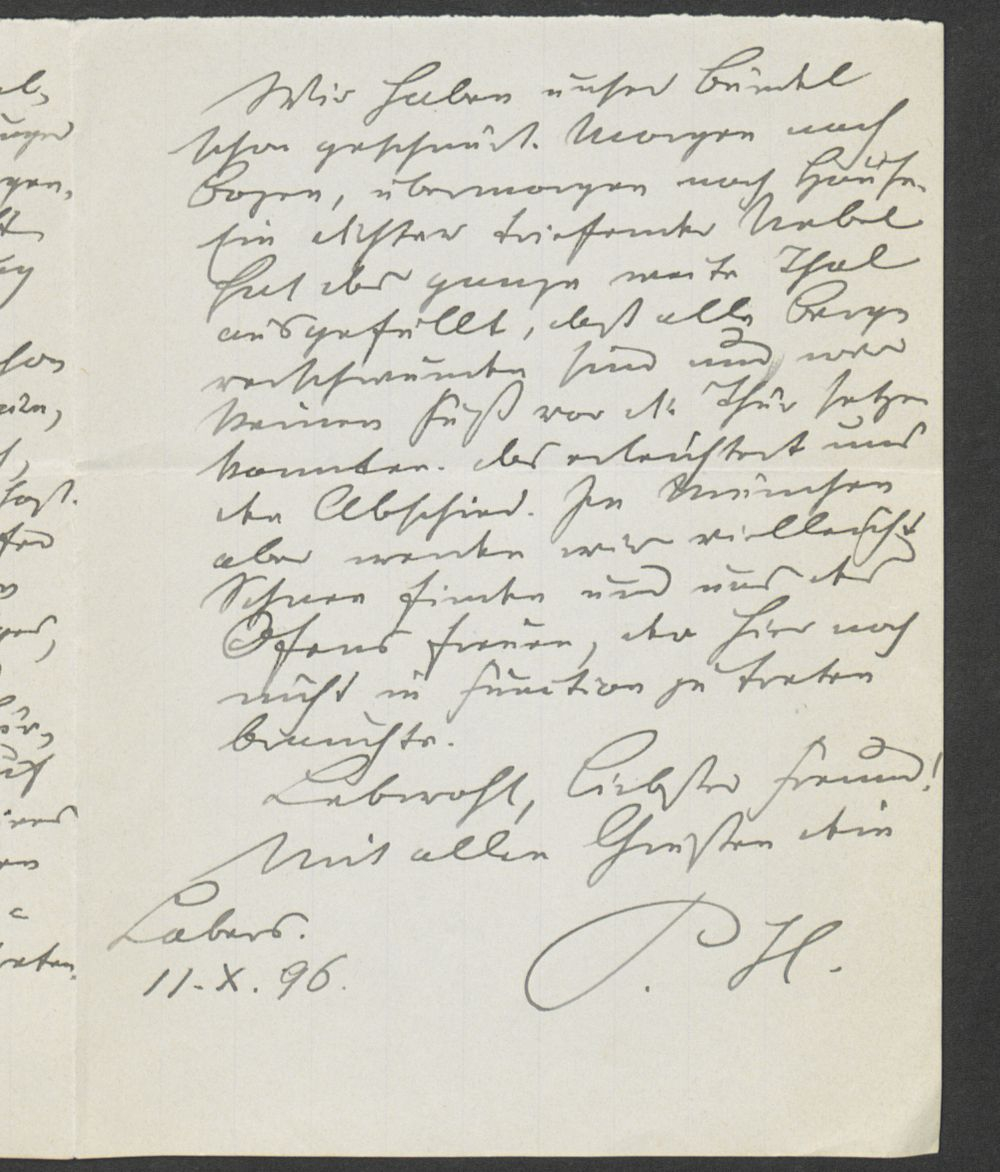 Wir haben unser Bündel
schon geschnürt. Morgen nach
Bozen, übermorgen nach Hause.
Ein dichter triefender Nebel
hat das ganze weite Thal
ausgefüllt, daß alle Berge
verschwunden sind und wir
keinen Fuß vor die Thür setzen
konnten. Das erleichtert uns
den Abschied. In München
aber werden wir vielleicht
Schnee finden und uns des
Ofens freuen, der hier noch
nicht in Function zu treten
brauchte.
Lebwohl, liebster Freund!
Mit allen Grüßen dein
P. H.
Labers.
11. X. 96.